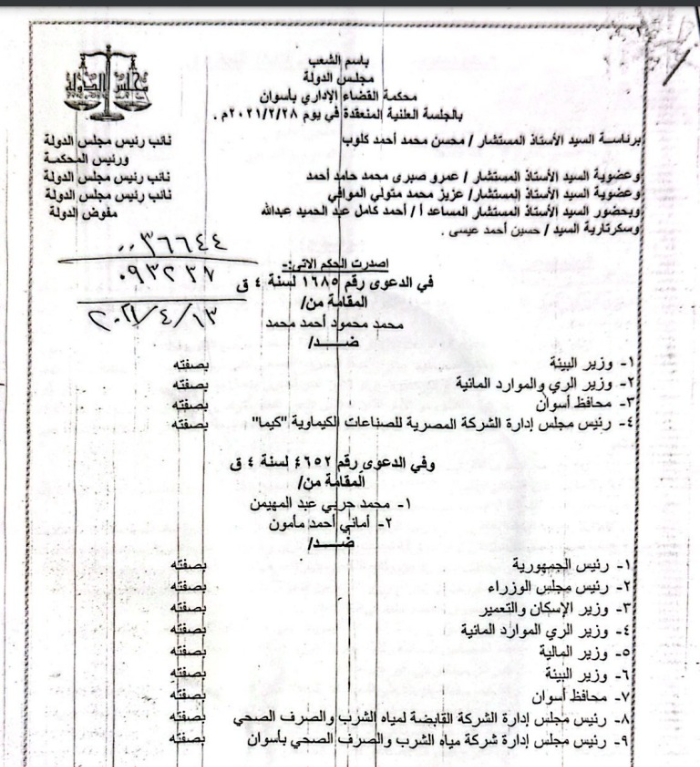 مجلس الدولة
باسم الشعب
مجلس الدولة
محكمة القضاء الإداري بأسوان
بالجلسة العلنية المنعقدة في يوم ٢٠٢١/٢/٢٨م .
برئاسة السيد الأستاذ المستشار / محسن محمد أحمد كلوب نائب رئيس مجلس الدولة
ورئيس المحكمة
وعضوية السيد الأستاذ المستشار / عمرو صبرى محمد حامد أحمد نائب رئيس مجلس الدولة
وعضوية السيد الأستاذ المستشار/ عزيز محمد متولي الموافي نائب رئيس مجلس الدولة
وبحضور السيد الأستاذ المستشار المساعد أ / أحمد كامل عبد الحميد عبدالله مفوض الدولة
وسكرتارية السيد / حسين أحمد عيسى .
٠٠٣٦٦٤٤
٠٩٣٢٣٧
٢٠٢١/٤/١٣
اصدرت الحكم الاتي:-
في الدعوى رقم ١٦٨٥ لسنة ٤ ق
المقامة من/
محمد محمود أحمد محمد
ضــــد/
١- وزير البيئة بصفته
٢- وزير الري والموارد المائية بصفته
٣- محافظ أسوان بصفته
٤- رئيس مجلس إدارة الشركة المصرية للصناعات الكيماوية "كيما" بصفته
وفي الدعوى رقم ٤٦٥٢ لسنة ٤ ق
المقامة من/
١- محمد حربي عبد المهيمن
٢- أماني أحمد مأمون
ضــــد/
١- رئيس الجمهورية بصفته
٢- رئيس مجلس الوزراء بصفته
٣- وزير الإسكان والتعمير بصفته
٤- وزير الري الموارد المائية بصفته
٥- وزير المالية بصفته
٦- وزير البيئة بصفته
٧- محافظ أسوان بصفته
٨- رئيس مجلس إدارة الشركة القابضة لمياه الشرب والصرف الصحي بصفته
٩- رئيس مجلس إدارة شركة مياه الشرب والصرف الصحي بأسوان بصفته